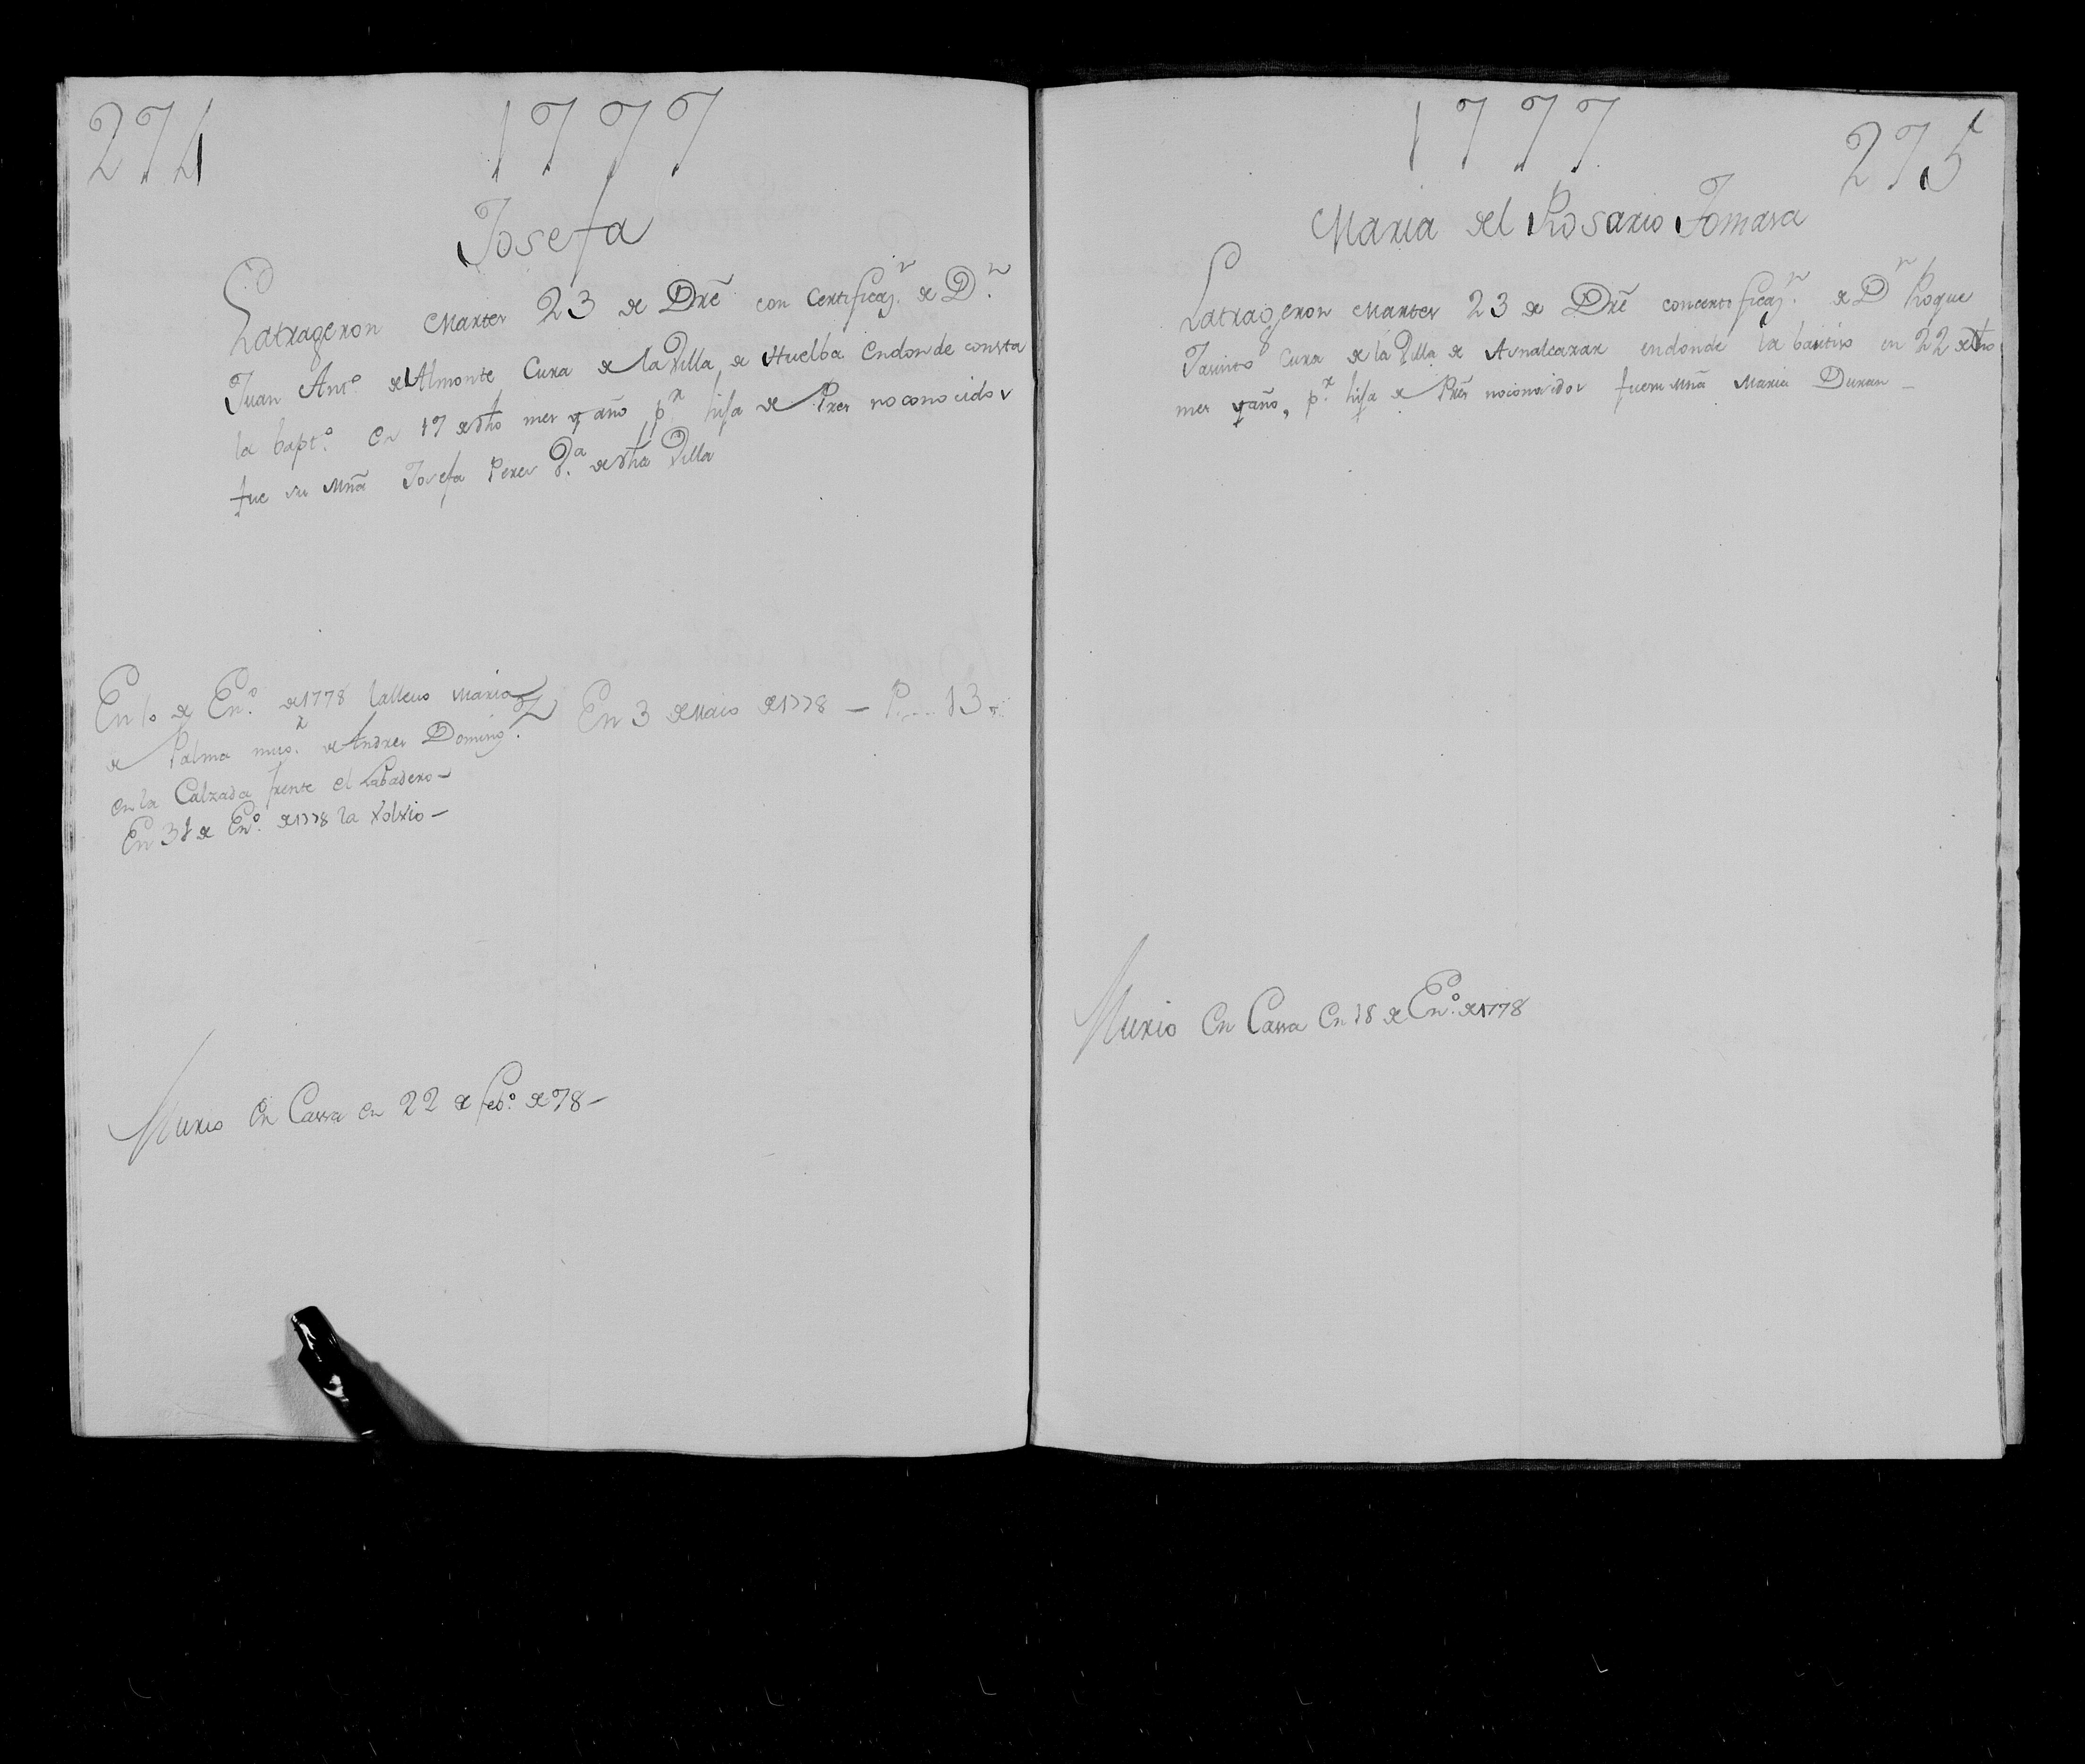 274
1777
Josefa
Latrageron Martes 23 de Dre con Certificaz.n de D.n
Juan Ant.o de Almonte Cura de la Villa de Huelba Endonde consta
la bapt.o en 17 de dho mes y año p.r hija de Pres no conocidos
fue su Mña Josefa Perez V.a de dha Villa
En 10 de En.o de 1778 la lleuo Maria
de Palma mug.r de Andres Doming.z
en la Calzada frente el Labadero-
En 31 de En.o de 1778 la Volvio-
En 3 de Maio de 1778 - P.... 13
Murio En Cassa en 22 de feb.o de 78-
1777
275
Maria del Rosario Tomasa
Latrageron Martes 23 de Dre con certificaz.n de D.n Roque
Cura de la Villa de Asnalcazar endonde la bautizo en 22 de dho
mes y año, p.r hija de Pres no conosidos fue su Mña Maria Duran-
Murio En Cassa En 18 de En.o de 1778